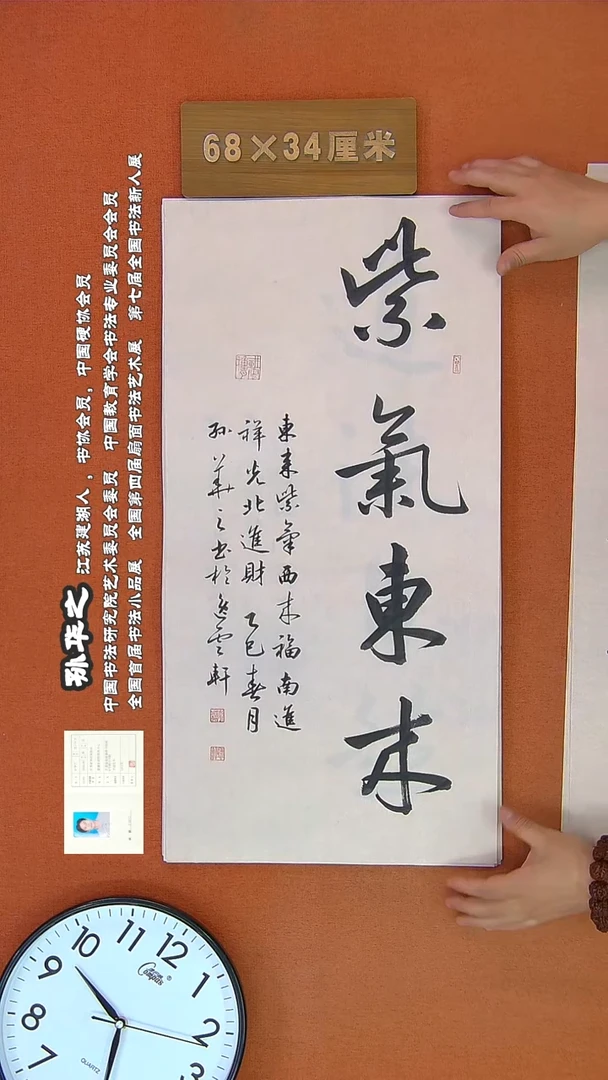 68×34厘米
紫氣東来
東来紫氣西来福南進
祥光北進財 乙巳春月
孙華之书於逸雲軒
孙华之 江苏建湖人，书协会员，中国硬协会员
中国书法研究院艺术委员会委员 中国教育学会书法专业委员会会员
全国首届书法小品展 全国第四届扇面书法艺术展 第七届全国书法新人展
9 10 11 12 1
8 2
7 3
QUARTZ